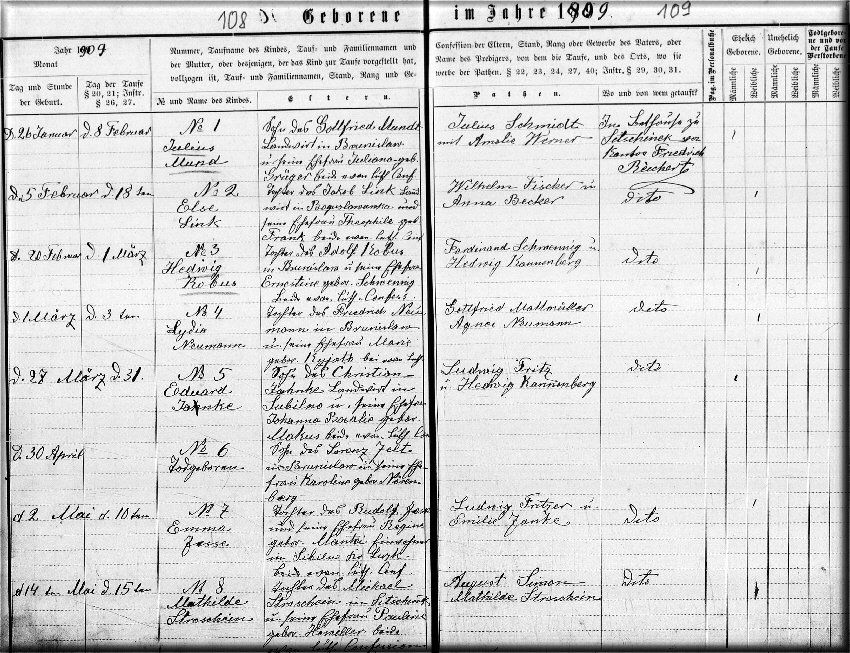 108
Geborene
im Jahre 1909
109
Jahr 1909
Monat
Tag und Stunde der Geburt.
Tag der Taufe § 20, 21; Instr. § 26, 27.
Nummer, Taufname des Kindes, Tauf- und Familiennamen und
der Mutter, oder desjenigen, der das Kind zur Taufe vorgestellt hat,
vollzogen ist, Tauf- und Familiennamen, Stand, Rang und Ge-
№ und Name des Kindes.
Eltern.
Confession der Eltern, Stand, Rang oder Gewerbe des Vaters, oder
Name des Predigers, von dem die Taufe, und des Orts, wo sie
werbe der Pathen. § 22, 23, 24, 27, 40; Instr. § 29, 30, 31.
Pathen.
Wo und von wem getauft
Pag. im Personalbuche
Ehelich Geborene.
Unehelich Geborene.
Todtgeborene und vor der Taufe Verstorbene
Männliche
Weibliche
Männliche
Weibliche
Männliche
Weibliche
D. 26 Januar d. 8 Februar
№ 1
Julius
Mund
Sohn des Gottfried Mundt
Landwirt in Brunislaw
u seine Ehefrau Juliana geb.
Krüger beide evan luth Conf
Julius Schmidt
mit Amalie Werner
Im Bethause zu
von
Kantor Friedrich
Reichert
D. 5 Februar d. 18 ten
№ 2
Else
Link
Tochter des Jakob Link Land
wirt in und
seine Ehefrau Theophile geb
Frank beide evan luth Conf
Wilhelm Fischer u
Anna Becker
dito
d. 20 Februar d. 1 März
№ 3
Hedwig
Kobus
Tochter des Adolf Kobus
in Brunislaw u seine Ehefrau
Ernestine geber. Schwennig
beide evan. luth. Confess.
Ferdinand Schwennig u
Hedwig Kannenberg
dito
d 1 März d. 3 ten
№ 4
Lydia
Neumann
Tochter des Friedrich Neu
mann in Brunislaw
u. seine Ehefrau Marie
geber. bei evan luth.
Gottfried Mattmüller
Agnes Neumann
dito
d. 27 März d. 31.
№ 5
Eduard
Jahnke
Sohn des Christian
Jahnke Landwirt in
u. seine Ehefrau
Johanna Rosalie geber
Makus beide evan. luth Con
Ludwig Fritz
u Hedwig Kannenberg
dito
D. 30 April
№ 6
Todgeboren
Sohn des Lorenz
in Brunislaw u seine Ehe
frau Karoline geber Nüren
berg
d 2 Mai d. 10 ten
№ 7
Emma
Tochter des Rudolf
und seine Ehefrau Regine
geber. Manke
in
beide evan luth. Conf
Ludwig Fritzer u
Emilie Janke
dito
d 14 ten Mai d. 15 ten
№ 8
Mathilde
Stroschein
Tochter des Michael
Stroschein in
u seine Ehefrau Pauline
geber. beide
evan luth Confession
August Simon
Mathilde Stroschein
dito